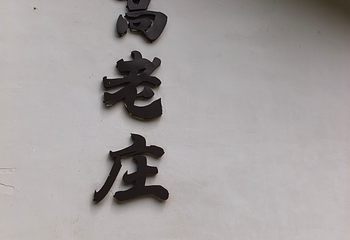 高老庄